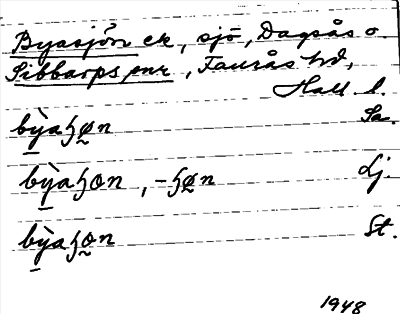 Byasjön ek, sjö, Dagsås o.
Sibbarps snr, Faurås hd,
Hall. l.
bỳaɧø̰n Sa.
bỳaɧon, -ɧø̰n Lj.
bỳaɧo̰n St.
1948